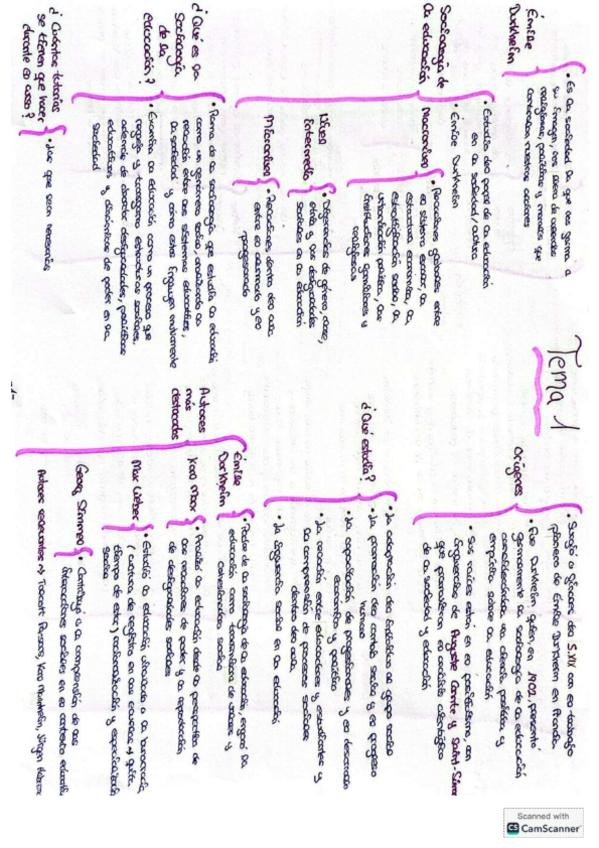 Tema 1
Orígenes
• Surgió a finales del S.XIX con el trabajo
pionero de Émile Durkheim en Francia.
• Fue Durkheim quien en 1902, presentó
la sociología de la educación
considerándola una ciencia positiva y
empírica sobre la educación
• Sus raíces están en el positivismo, con
influencias de Auguste Comte y Saint-Simon
que promovieron el análisis científico
de la sociedad y educación
¿Qué estudia?
• La adaptación del individuo al grupo social
• La promoción del control social y el progreso
humano
• La capacitación de profesionales y el desarrollo
económico y político
• La relación entre educadores y estudiantes y
la comprensión de procesos sociales
dentro del aula
• La influencia social en la educación
Autores
más
destacados
Émile
Durkheim
• Padre de la sociología de la educación,
educación como transmisora de valores y
social
Karl Marx
• Analizó la educación desde la perspectiva de
las relaciones de poder y la reproducción
de desigualdades sociales
Max Weber
• Estudió la educación vinculada a la burocracia
racionalización y especialización
social
Georg Simmel
• Contribuyó a la comprensión de las
interacciones sociales en el contexto
Autores → Talcott Parsons, Karl Mannheim, Jürgen Habermas
Émile
Durkheim
• Es la sociedad la que nos forma a
su imagen, nos llena de creencias
religiosas, políticas y morales que
controlan nuestras acciones
Sociología de
la educación
• Estudia del papel de la educación
en la sociedad/cultura
• Émile Durkheim
Macronivel
• Relaciones globales entre
el sistema escolar, la
estructura económica, la
estratificación social, la
política, las
instituciones familiares y
religiosas
Nivel
intermedio
• Diferencias de género, clase,
etnia y las desigualdades
sociales en la educación
Micronivel
• Relaciones dentro del aula
entre el alumnado y el
profesorado
¿Qué es la
Sociología
de la
educación?
• Rama de la sociología que estudia la educación
como un fenómeno social, analizando la
relación entre los sistemas educativos,
la sociedad y cómo estos influyen mutuamente
• Examina la educación como un proceso que
refleja y transforma estructuras sociales,
además de abordar desigualdades, políticas
educativas y dinámicas de poder en la
sociedad
¿Cuántas tutorías
se tienen que hacer
durante el curso?
• Las que sean necesarias
Scanned with
CS CamScanner